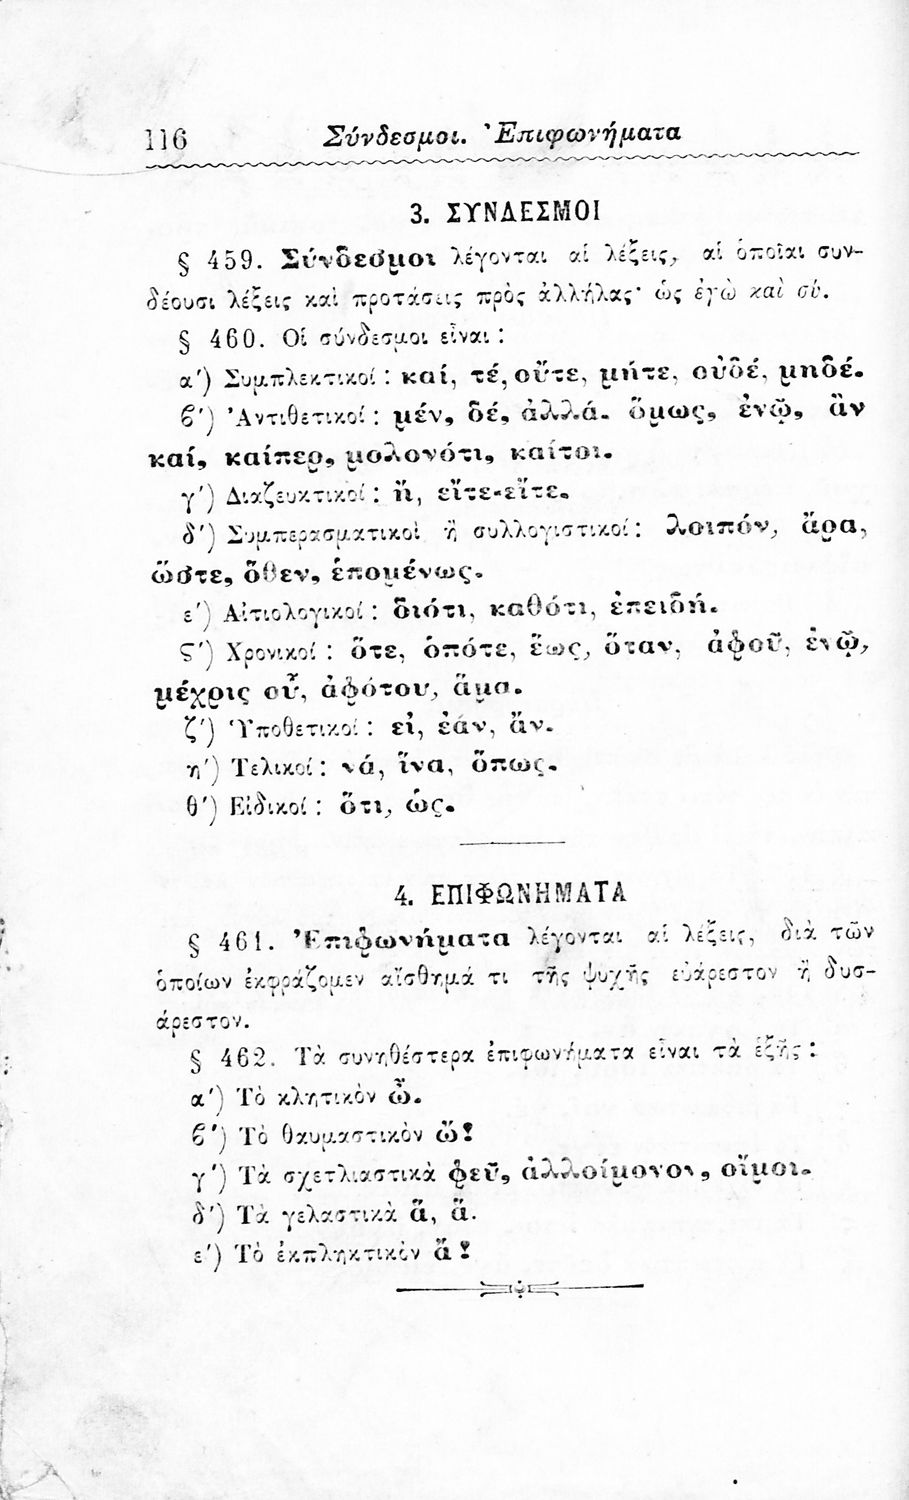 116 Σύνδεσμοι. Ἐπιφωνήματα
3. ΣΥΝΔΕΣΜΟΙ
§ 459. Σύνδεσμοι λέγονται αἱ λέξεις, αἱ ὁποῖαι συν-
δέουσι λέξεις καὶ προτάσεις πρὸς ἀλλήλας· ὡς ἐγὼ καὶ σύ.
§ 460. Οἱ σύνδεσμοι εἶναι :
α′) Συμπλεκτικοί : καί, τέ, οὔτε, μήτε, οὐδέ, μηδέ.
ϐ′) Ἀντιθετικοί : μέν, δέ, ἀλλά. ὅμως, ἐνῷ, ἂν
καί, καίπερ, μολονότι, καίτοι.
γ′) Διαζευκτικοί : ἤ, εἴτε-εἴτε.
δ′) Συμπερασματικοὶ ἢ συλλογιστικοί : λοιπόν, ἄρα,
ὥστε, ὅθεν, ἑπομένως.
ε′) Αἰτιολογικοί : διότι, καθότι, ἐπειδή.
ς′) Χρονικοί : ὅτε, ὁπότε, ἕως, ὅταν, ἀφοῦ, ἐνῷ,
μέχρις οὗ, ἀφότου, ἅμα.
ζ′) Ὑποθετικοί : εἰ, ἐάν, ἄν.
η′) Τελικοί : νά, ἵνα, ὅπως.
θ′) Εἰδικοί : ὅτι, ὡς.
4. ΕΠΙΦΩΝΗΜΑΤΑ
§ 461. Ἐπιφωνήματα λέγονται αἱ λέξεις, διὰ τῶν
ὁποίων ἐκφράζομεν αἴσθημά τι τῆς ψυχῆς εὐάρεστον ἢ δυσ-
άρεστον.
§ 462. Τὰ συνηθέστερα ἐπιφωνήματα εἶναι τὰ ἑξῆς :
α′) Τὸ κλητικὸν ὦ.
ϐ′) Τὸ θαυμαστικὸν ὤ!
γ′) Τὰ σχετλιαστικὰ φεῦ, ἀλλοίμονον, οἴμοι.
δ′) Τὰ γελαστικὰ ἅ, ἅ.
ε′) Τὸ ἐκπληκτικὸν ἆ!